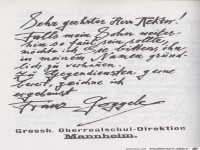 Sehr geehrter Herr Rektor!
Falls mein Sohn weiter-
hin so faul sein sollte,
möchte ich Sie bitten, ihn
in meinem Namen gründ-
lich zu verhauen.
Zu Gegendiensten gerne
bereit zeichne ich
ergebenst
Franz
Grossh. Oberrealschul-Direktion
Mannheim.